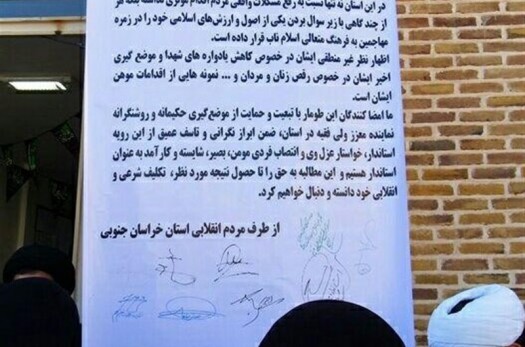 در این استان نه تنها نسبت به رفع مشکلات واقعی مردم اقدام موثری نداشته بلکه هر
از چند گاهی با زیر سوال بردن یکی از اصول و ارزش‌های اسلامی خود را در زمره
مهاجمین به فرهنگ متعالی اسلام ناب قرار داده است.
اظهار نظر غیر منطقی ایشان در خصوص کاهش یادواره های شهدا و موضع گیری
اخیر ایشان در خصوص رقص زنان و مردان و ... نمونه هایی از اقدامات موهن
ایشان است.
ما امضا کنندگان این طومار با تبعیت و حمایت از موضع‌گیری حکیمانه و روشنگرانه
نماینده معزز ولی فقیه در استان، ضمن ابراز نگرانی و تاسف عمیق از این رویه
استاندار، خواستار عزل وی و انتصاب فردی مومن، بصیر، شایسته و کارآمد به عنوان
استاندار هستیم و این مطالبه به حق را تا حصول نتیجه مورد نظر، تکلیف شرعی و
انقلابی خود دانسته و دنبال خواهیم کرد.
از طرف مردم انقلابی استان خراسان جنوبی